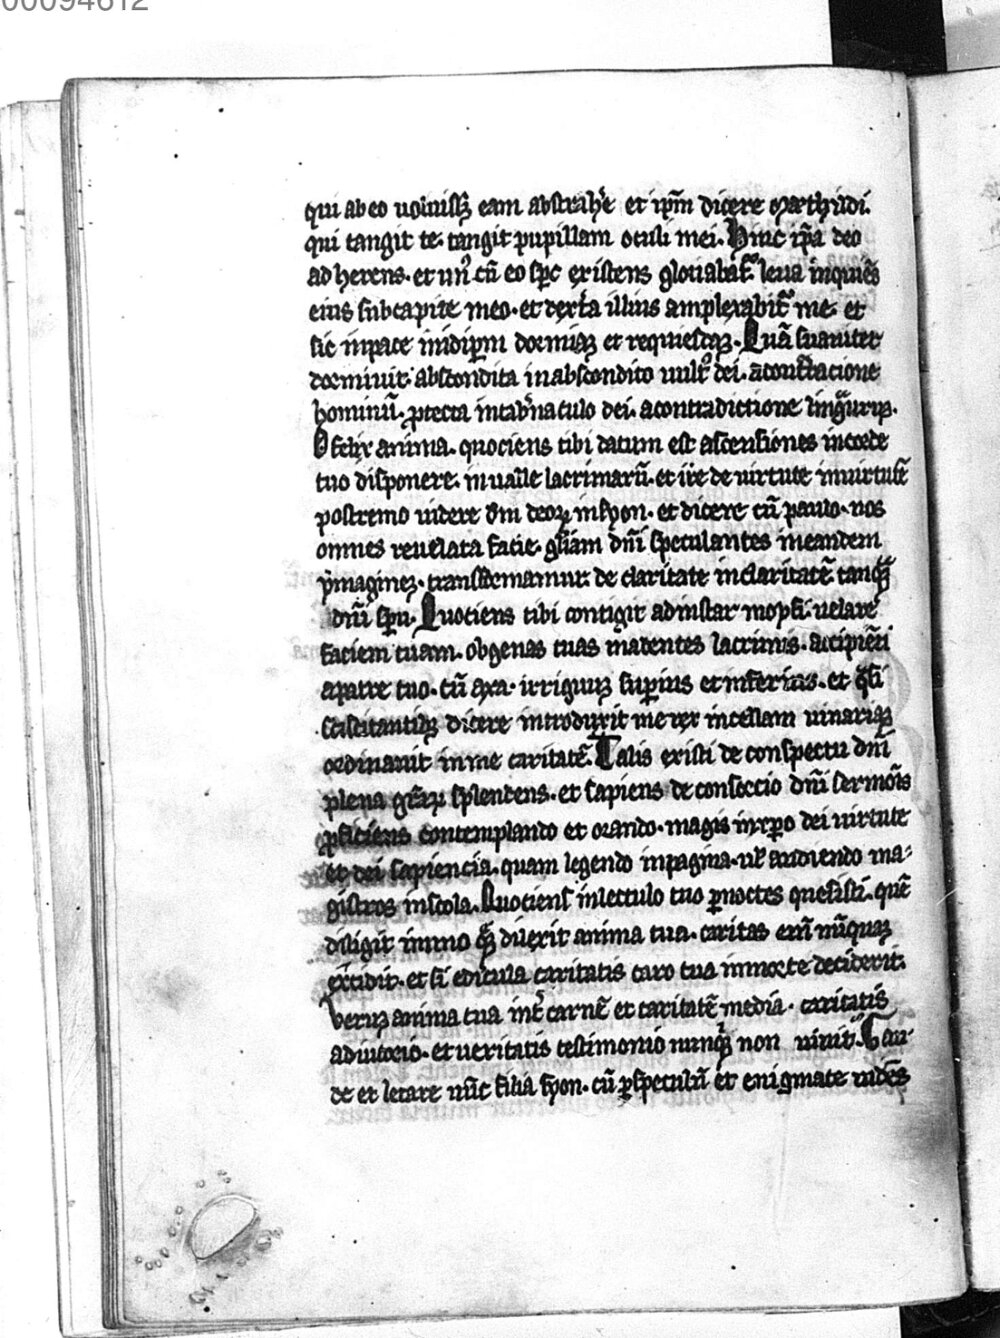 00094612
qui ab eo uoluissꝫ eam abstrahe᷑ et ip̅m dicere mathildi.
qui tangit te. tangit pupillam oculi mei. Hinc ip̅a deo
ad herens. et un᷒ cu̅ eo sp̅c existens gloriabat᷑. leua inquie̅s
eius sub capite meo. et dext᷑a illius amplexabit᷑ me. et
sic in pace in idip̅m dormiaꝫ et requiescaꝫ. Qua̅ suauiter
dormiuit abscondita in abscondito uult᷒ dei. a
hominu̅. ꝓtecta in tab̅naculo dei. a contradictione
O felix anima. quociens tibi datum est ascensiones in corde
tuo disponere. in ualle lacrimaru̅. et ire de uirtute in uirtute̅
postremo uidere dm̅ deoꝝ in syon. et dicere cu̅ paulo. nos
omnes reuelata facie. gl̅iam dn̅i speculantes in eandem
ymagineꝫ. transformamur de claritate in claritate̅ tanqᷓꝫ
a dn̅i sp̅u. Quociens tibi contigit ad instar moysi. uelare
faciem tuam. ob genas tuas madentes lacrimis. accipienti
a patre tuo. cu̅ axa. irriguuꝫ sup̲ius et inferius. et qᷓsi
dicere introduxit me rex in cellam uinariaꝫ
ordinauit in me caritate̅. Talis existi de conspectu dn̅i
plena gr̅aꝝ splendens. et sapiens de consorcio dn̅i sermo̅is
ꝓficiens contemplando et orando. magis in xp̅o dei uirtute
et dei sapiencia. quam legendo in pagina. ul̅ audiendo ma-
gistros in scola. Quociens in lectulo tuo p̲ noctes quesisti. que̅
diligit immo qᷓꝫ dilexit anima tua. caritas eni̅ nu̅quaꝫ
excidit. et si edicula caritatis caro tua in morte deciderit.
Veruꝫ anima tua int᷑ carne̅ et caritate̅ media. caritatis
adiutorio. et ueritatis testimonio nunqᷓꝫ non uiuit. Gau-
de et letare nu̅c filia syon. cu̅ p̲ speculu̅ et enigmate uide̅s